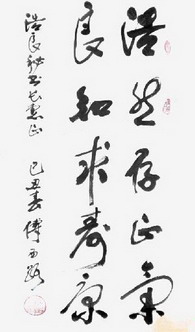 浩然存正氣
良知求壽康
浩良秘书长惠正
己丑春傅